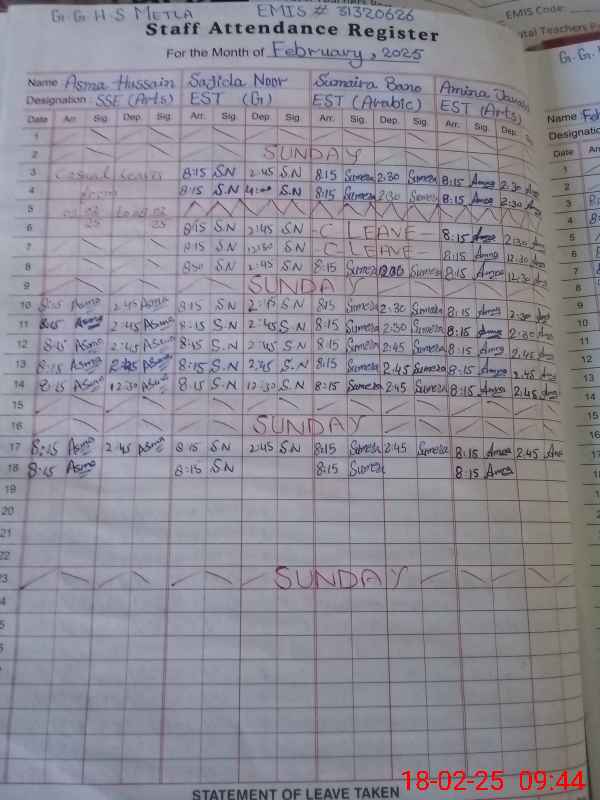 G.G.H.S METLA EMIS # 31320626
EMIS Code:
Staff Attendance Register
For the Month of February, 2025
Name Asma Hussain Sajida Noor Sumaira Bano Amina
Designation: SSE (Arts) EST (G) EST (Arabic) EST (Arts)
Date Arr. Sig. Dep. Sig. Arr. Sig. Dep. Sig. Arr. Sig. Dep. Sig. Arr. Sig. Dep.
1
2 SUNDAY
3 Casual Leave 8:15 S.N 2:45 S.N 8:15 Sumera 2:30 Sumera 8:15 Amna 2:30
4 8:15 S.N S.N 8:15 Sumera 2:30 Sumera 8:15 Amna 2:30
5
6 8:15 S.N 2:45 S.N -C LEAVE- 8:15 Amna 2:30
7 8:15 S.N 12:30 S.N -C LEAVE- 8:15 Amna 12:30
8 S.N 2:45 S.N 8:15 Sumera Sumera 8:15 Amna 12:30
9 SUNDAY
10 8:15 Asma 2:45 Asma 8:15 S.N 2:45 S.N 8:15 Sumera 2:30 Sumera 8:15 Amna 2:30
11 8:15 Asma 2:45 Asma 8:15 S.N 2:45 S.N 8:15 Sumera 2:30 Sumera 8:15 Amna 2:30
12 8:15 Asma 2:45 Asma 8:15 S.N 2:45 S.N 8:15 Sumera 2:45 Sumera 8:15 Amna 2:45
13 8:15 Asma 2:45 Asma 8:15 S.N 2:45 S.N 8:15 Sumera 2:45 Sumera 8:15 Amna 2:45
14 8:15 Asma 12:30 Asma 8:15 S.N 12:30 S.N 8:15 Sumera 2:45 Sumera 8:15 Amna 2:45
15
16 SUNDAY
17 8:15 Asma 2:45 Asma 8:15 S.N 2:45 S.N 8:15 Sumera 2:45 Sumera 8:15 Amna 2:45
18 8:15 Asma 8:15 S.N 8:15 Sumera 8:15 Amna
19
20
21
22
23 SUNDAY
STATEMENT OF LEAVE TAKEN
18-02-25 09:44